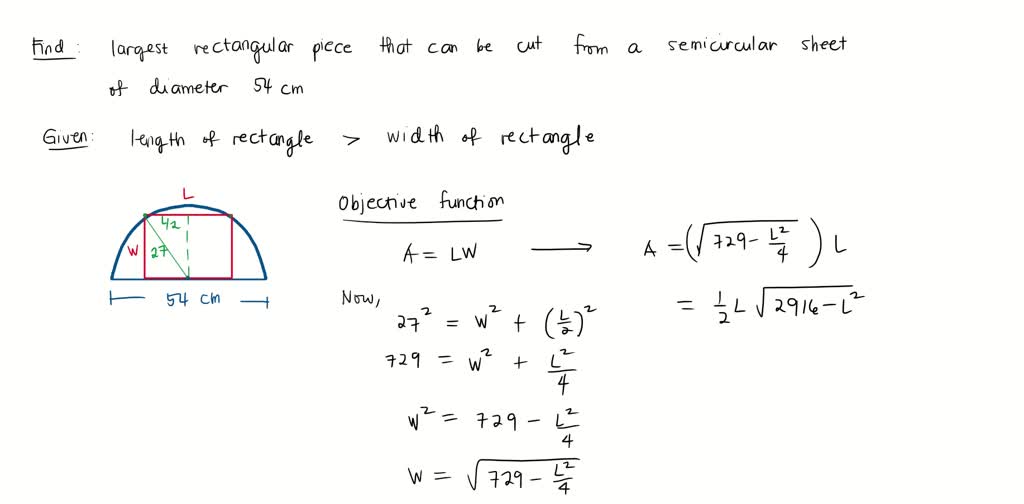 Find: largest rectangular piece that can be cut from a semicircular sheet
of diameter 54 cm
Given: length of rectangle > width of rectangle
L
L/2
W
27
54 cm
Objective function
A = LW → A = (√(729 - L²/4)) L
= 1/2 L √(2916 - L²)
Now,
27² = W² + (L/2)²
729 = W² + L²/4
W² = 729 - L²/4
W = √(729 - L²/4)